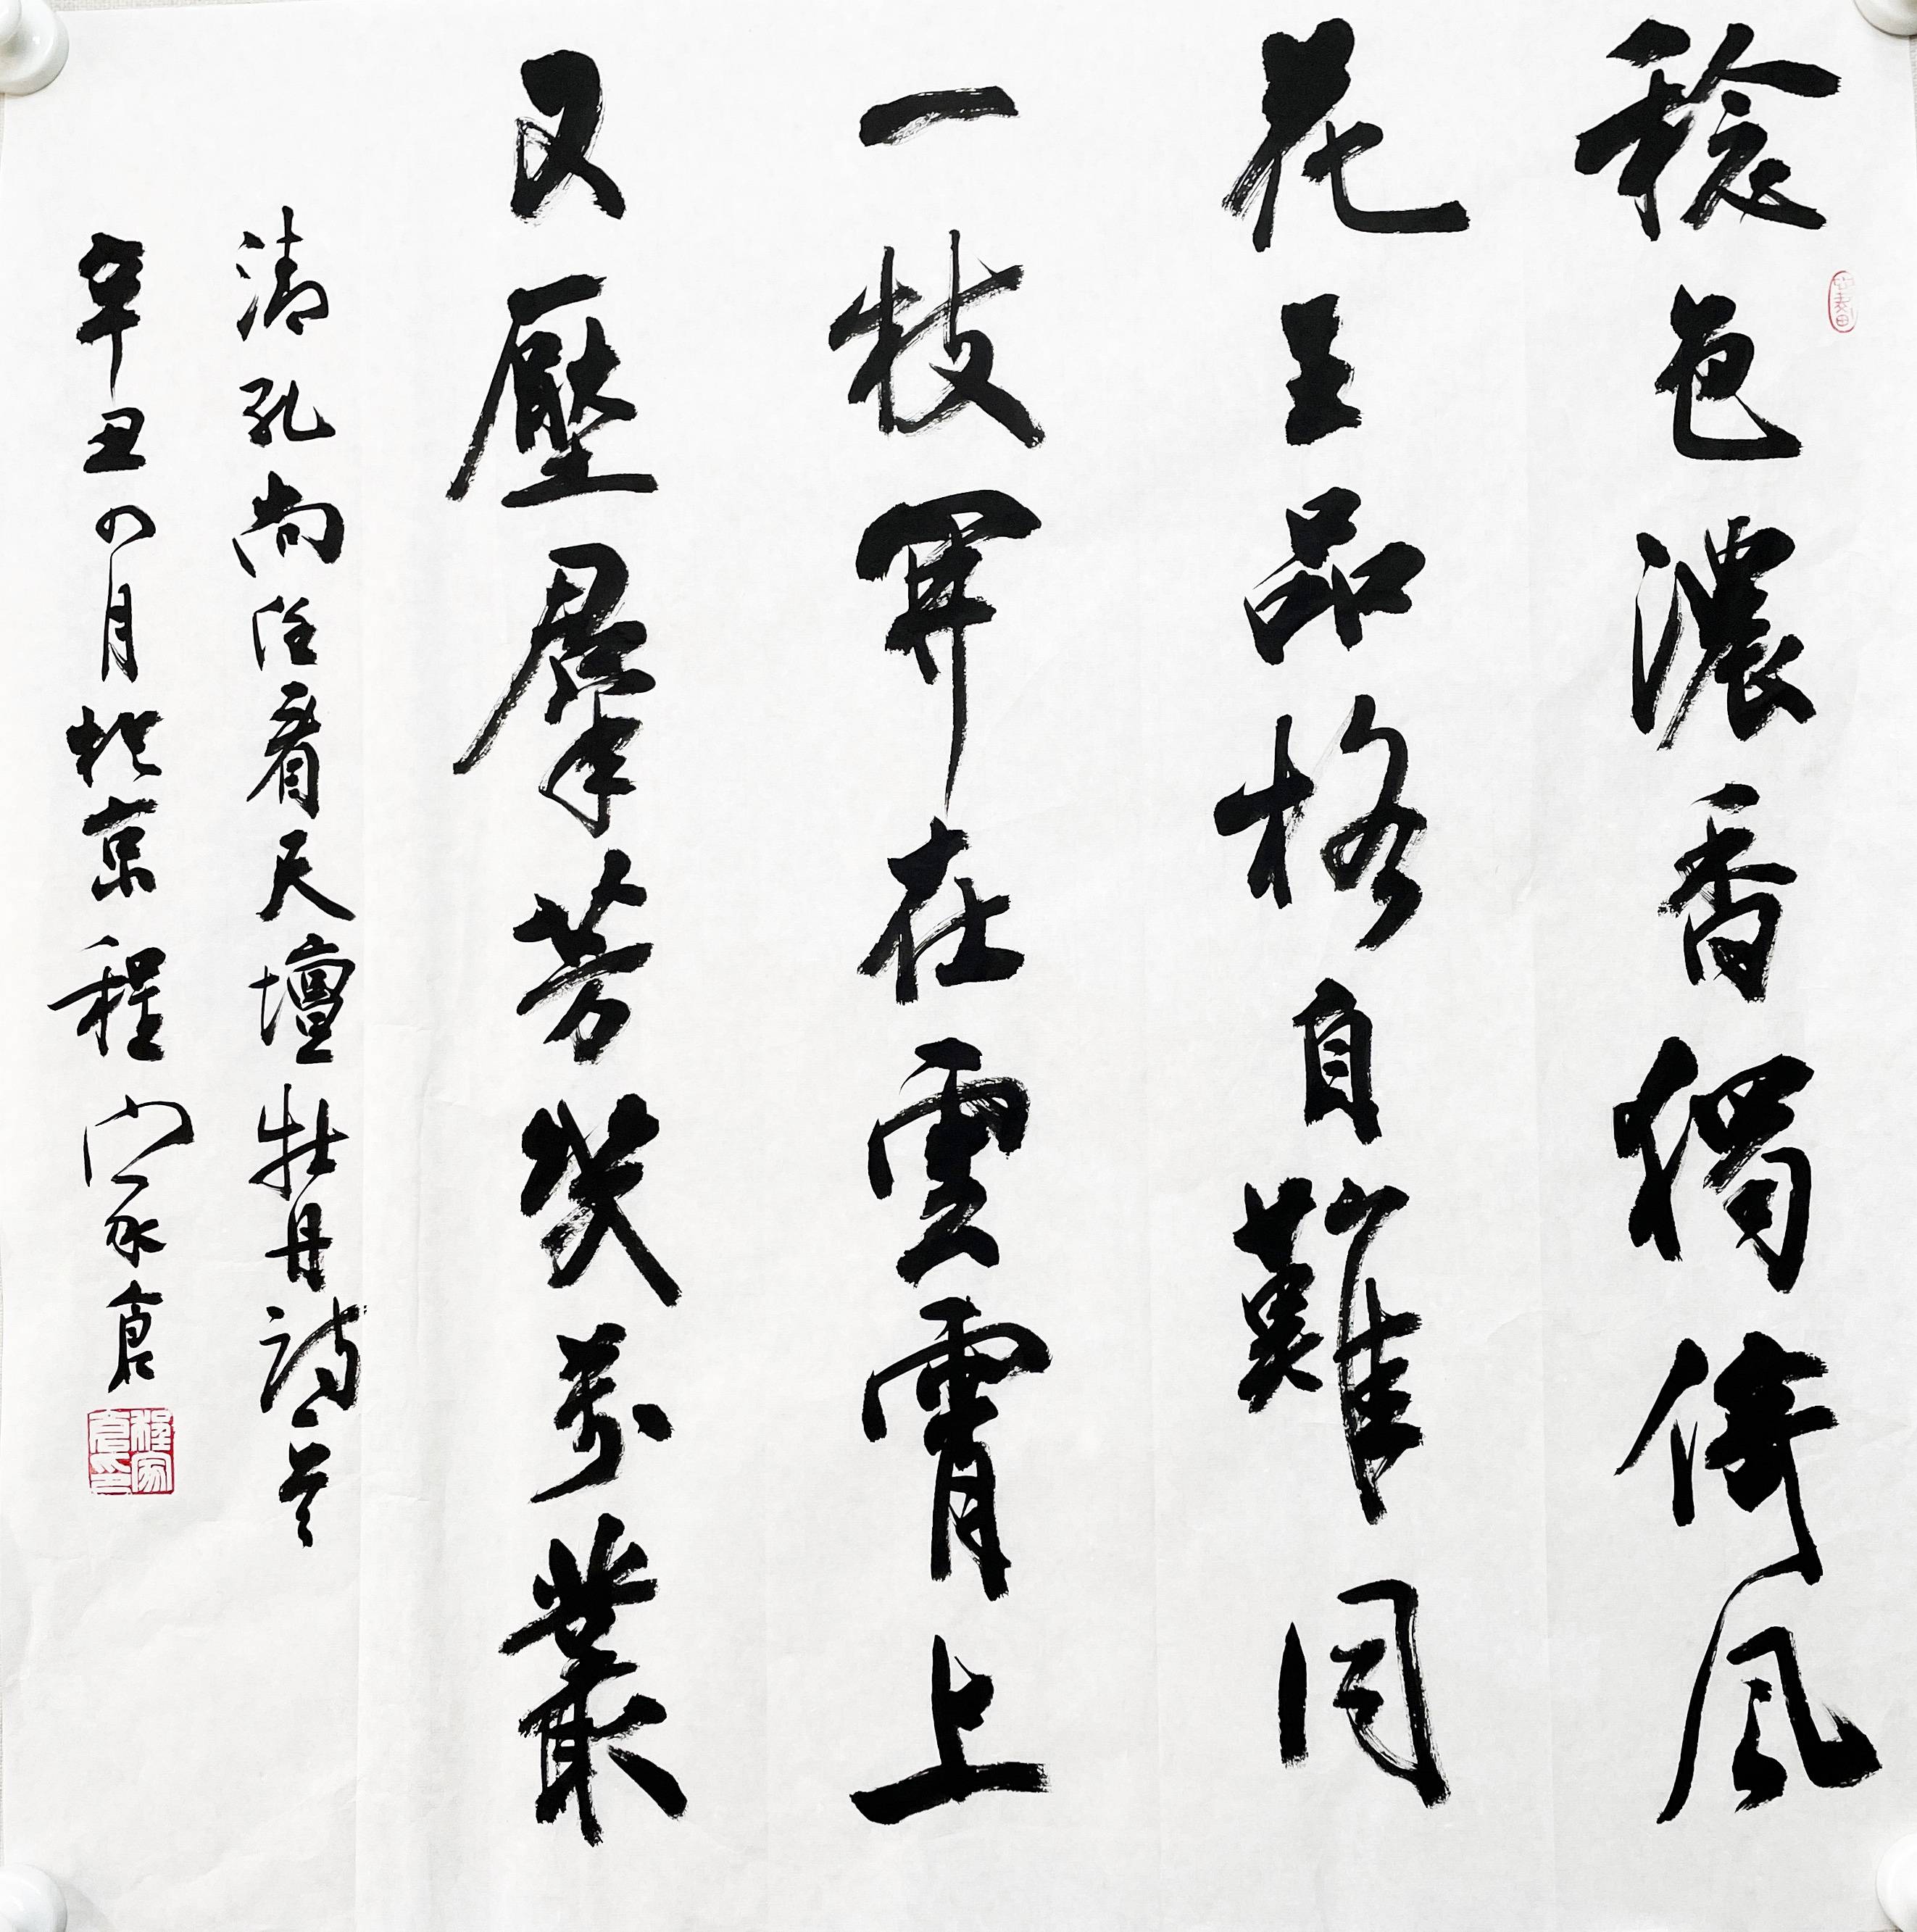 稔色濃香獨倚風
花王品格自難同
一枝開在雲霄上
又壓羣芳幾萬叢
清孔尚任看天壇牡丹詩一首
辛丑四月於京程家倉